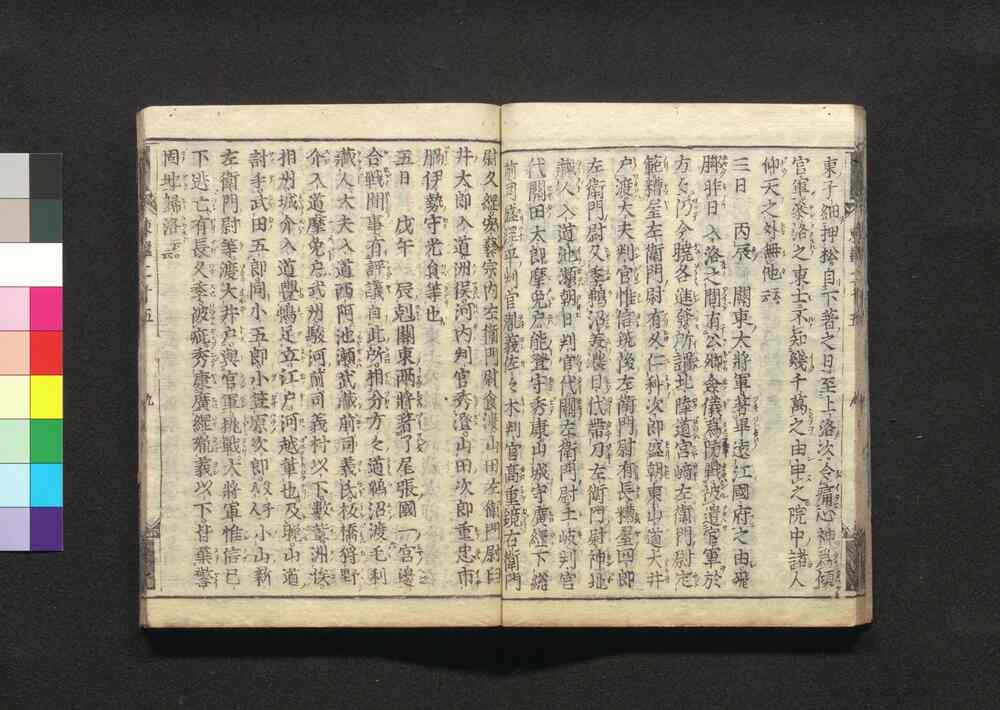 東子細押松自下著之日至上洛次令痛心神為傾
官軍參洛之東士不知幾千萬之由申之院中諸人
仰天之外無他云云
三日　丙辰　關東大將軍著早遠江國府之由飛
脚昨日入洛之間有公卿僉儀為防戰被遣官軍於
方方仍今曉各進發所謂北陸道宮崎左衛門尉定
範糟屋左衛門尉有久仁科次郎盛朝東山道大井
戶渡大夫判官惟信筑後左衛門尉有長糟屋四郎
左衛門尉久季鵜沼美濃目代帶刀左衛門尉神地
藏人入道池瀬朝日判官代關左衛門尉土岐判官
代關田太郎摩免戶能登守秀康山城守廣經下総
前司盛経平判官胤義佐々木判官高重鏡右衛門
尉久經安藝宗内左衛門尉食渡山田左衛門尉臼
井太郎入道洲俣河内判官秀澄山田次郎重忠市
脇伊勢守光員等也
五日　戊午　辰剋關東兩將著于尾張國一宮邊
合戰間事有評議自此所相分方々道鵜沼渡毛利
藏人大夫入道西阿池瀬武藏前司義氏板橋狩野
介入道摩免戶武州駿河前司義村以下數輩洲俣
相州城介入道豐嶋足立江戶河越輩也及晚山道
討手武田五郎同小五郎小笠原次郎
小山新
左衛門尉等渡大井戶與官軍挑戰大將軍惟信已
下逃亡有長久季被疵秀康廣經胤義以下皆棄警
固地歸洛云云
東鑑二十五
九